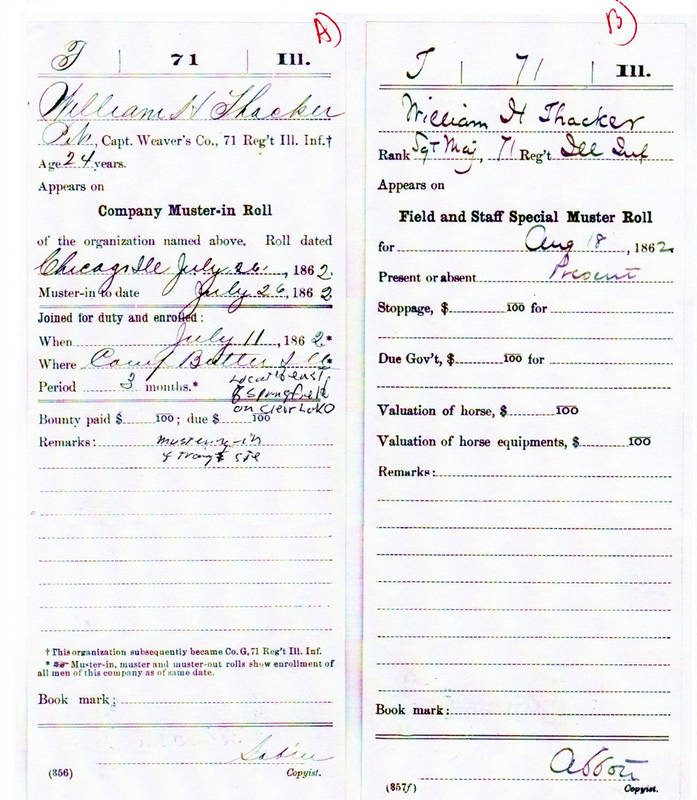 A)
T 71 Ill.
William H Thacker
Pvt, Capt. Weaver's Co., 71 Reg't Ill. Inf.†
Age 24 years.
Appears on
Company Muster-in Roll
of the organization named above. Roll dated
Chicago Ill July 26, 1862.
Muster-in to date July 26, 1862
Joined for duty and enrolled:
When July 11, 1862*
Where Camp Butler Ills
Period 3 months.*
Locat'd east
of Springfield
on Clear Lake
Bounty paid $ 100; due $ 100
Remarks: mustering-in
& traing site
†This organization subsequently became Co. G, 71 Reg't Ill. Inf.
* ☞ Muster-in, muster and muster-out rolls show enrollment of
all men of this company as of same date.
Book mark:
(356) Copyist.
B)
T 71 Ill.
William H Thacker
Rank Sgt Maj, 71 Reg't Ill Inf
Appears on
Field and Staff Special Muster Roll
for Aug 18, 1862
Present or absent Present
Stoppage, $ 100 for
Due Gov't, $ 100 for
Valuation of horse, $ 100
Valuation of horse equipments, $ 100
Remarks:
Book mark:
Abbott
(357f) Copyist.